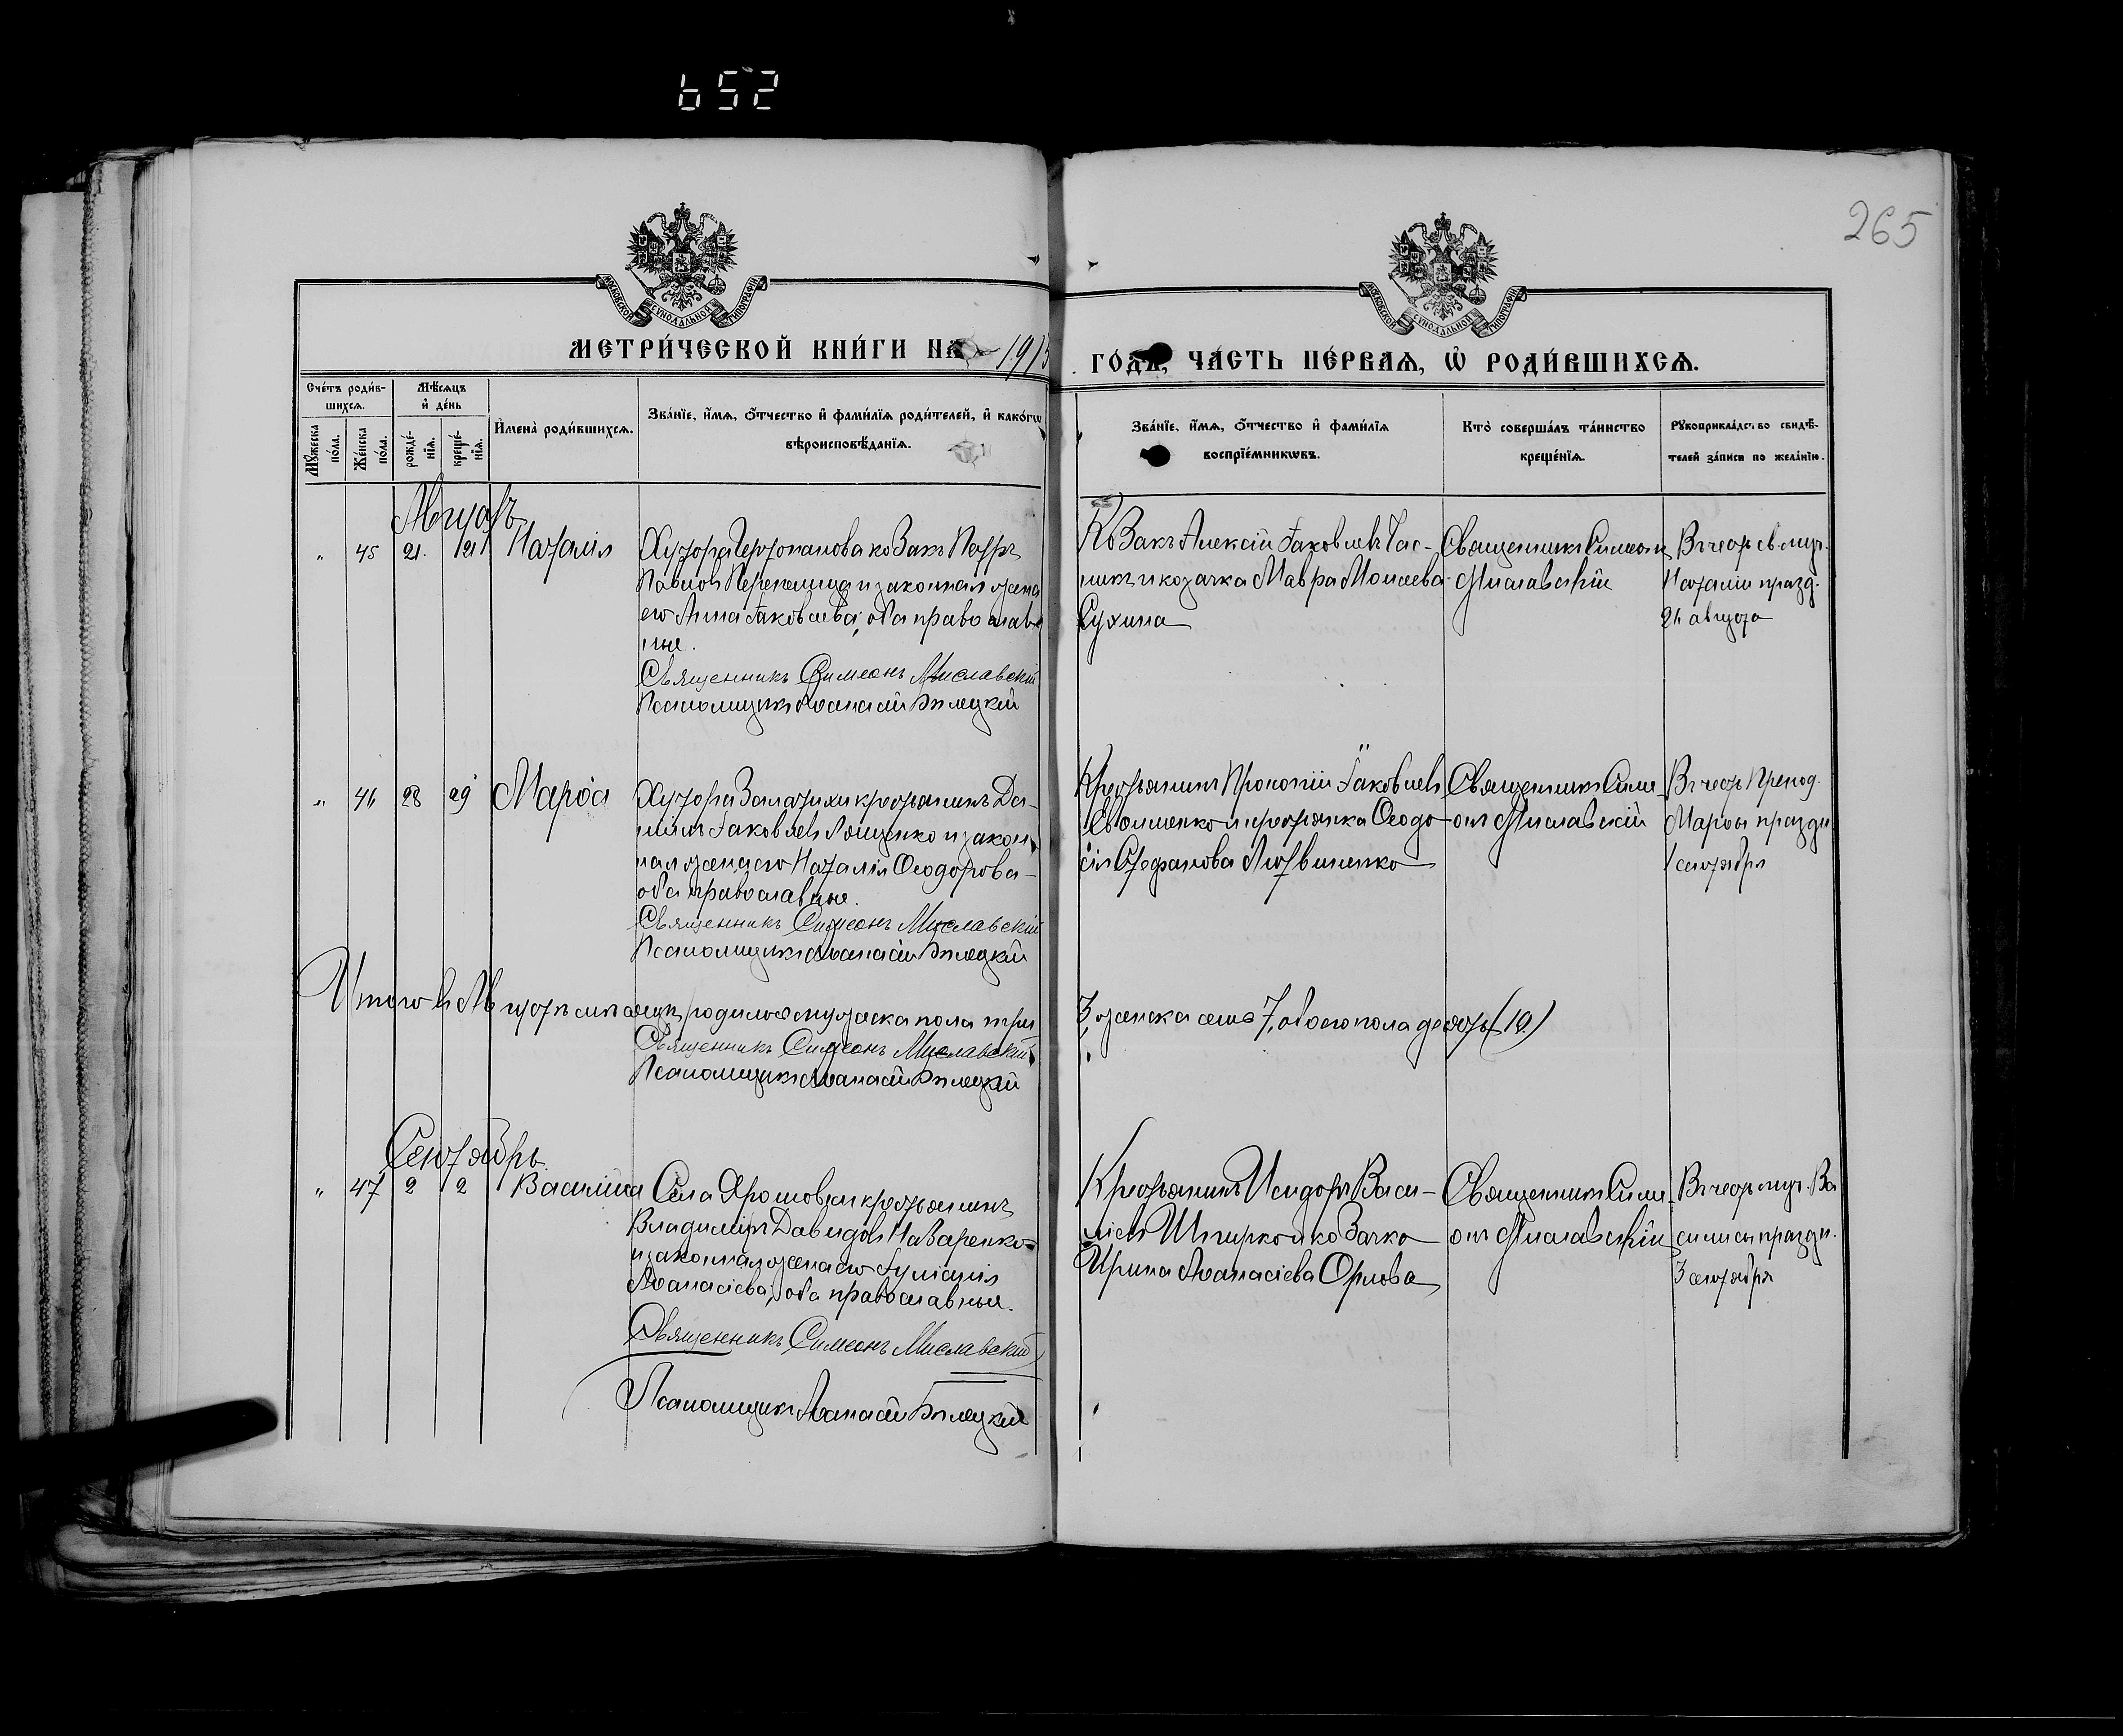 652
265
МОСКОВСКОЙ СѴНОДАЛЬНОЙ ТИПОГРАФІИ
МОСКОВСКОЙ СѴНОДАЛЬНОЙ ТИПОГРАФІИ
МЕТРИ́ЧЕСКОЙ КНИ́ГИ НА 1915
ГО́ДЪ, ЧА́СТЬ ПЕ́РВАѦ, Ѡ҆ РОДИ́ВШИХСѦ.
Сче́тъ роди́в-
шихсѧ.
Мѣ́сѧцъ
и҆ де́нь
Мꙋ́жеска по́ла.
Же́нска по́ла.
рожде́-
нїѧ.
креще́-
нїѧ.
И҆мена̀ роди́вшихсѧ.
Зва́нїе, и҆́мѧ, ѻ҆́тчество и҆ фами́лїѧ роди́телей, и҆ како́гѡ
вѣроисповѣ́данїѧ.
Зва́нїе, и҆́мѧ, ѻ҆́тчество и҆ фами́лїѧ
воспрїе́мникѡвъ.
Кто̀ соверша́лъ та́инство
креще́нїѧ.
Рꙋкоприкла́дство свидѣ́-
телей за́писи по жела́нїю.
Августъ
" 45 21. 21 Наталія
козакъ Петръ
Павловъ Перепелица и законная жена
его Анна Іаковлева, оба православ
ные.
Священникъ Симеонъ Миславскій
Псаломщикъ Аѳанасій Бѣлецкій
Козакъ Алексій Іаковлевъ Гас-
никъ и козачка Мавра Моисеева
Сухина
Священникъ Симеонъ
Миславскій
Въ честь св. муч.
Наталіи празд.
26 августа
" 46 28 29 Марѳа
Хутора Залатихи крестьянинъ Да-
ніилъ Іаковлевъ Лященко и закон
ная жена его Наталія Ѳеодорова -
оба православные.
Священникъ Симеонъ Миславскій
Псаломщикъ Аѳанасій Бѣлецкій
Крестьянинъ Прокопій Іаковлевъ
Евтименко и крестьянка Ѳеодо
сія Стефанова Литвиненко
Священникъ Симе-
онъ Миславскій
Въ честь Препод.
Марѳы праздн
1 сентября
Итого въ Августѣ мѣсяцѣ родилось мужеска пола три
3, женска семь 7, обоего пола десять (10)
Священникъ Симеонъ Миславскій
Псаломщикъ Аѳанасій Бѣлецкій
Сентябрь.
" 47 2 2 Василиса
Села Ярошовки крестьянинъ
Владиміръ Давидовъ Назаренко
и законная жена его Іуліанія
Аѳанасіева, оба православные.
Священникъ Симеонъ Миславскій
Псаломщикъ Аѳанасій Бѣлецкій
Крестьянинъ Исидоръ Васи-
ліевъ Шпирко и козачка
Ирина Аѳанасіева Орлова
Священникъ Симе-
онъ Миславскій
Въ честь муч. Ва
силисы праздн.
3 сентября